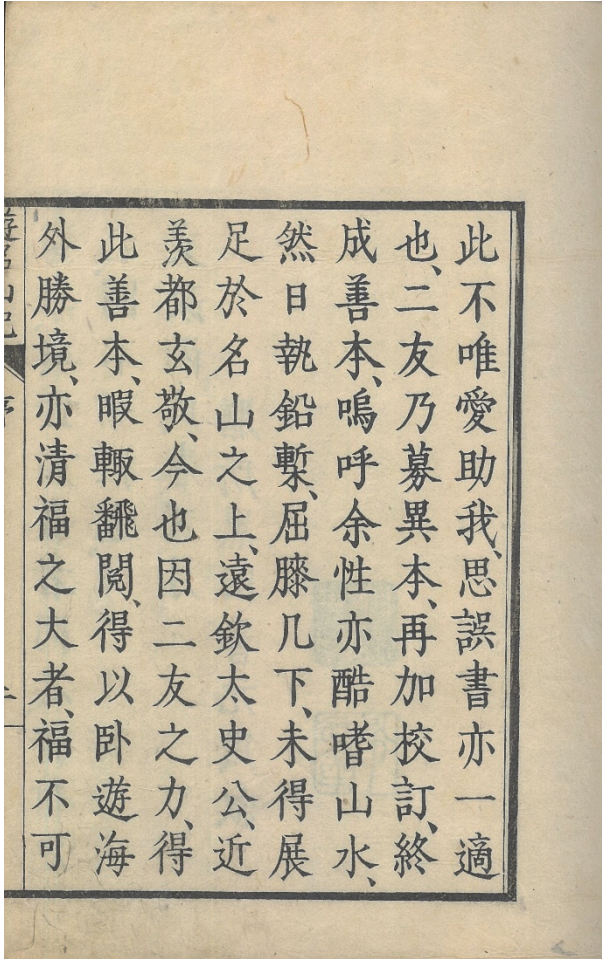 此不唯愛助我、思誤書亦一適
也、二友乃募異本、再加校訂、終
成善本、嗚呼余性亦酷嗜山水、
然日執鉛槧、屈膝几下、未得展
足於名山之上、遠欽太史公、近
羨都玄敬、今也因二友之力、得
此善本、暇輙飜閱、得以卧遊海
外勝境、亦清福之大者、福不可
遊名山記
序